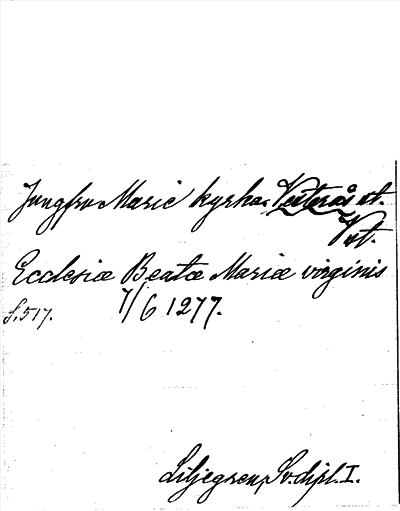 Jungfru Marie kyrka, Västerås st.
Vst.
Ecclesiæ Beatæ Mariæ virginis
S. 517. 7/6 1277.
Liljegren, Sv. dipl. I.